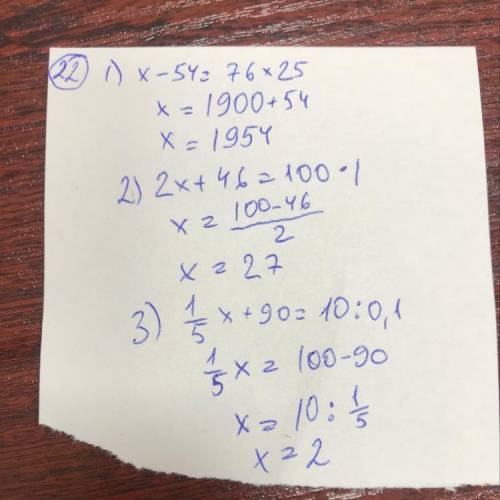 22 1) x - 54 = 76 × 25
x = 1900 + 54
x = 1954
2) 2x + 46 = 100 · 1
x = (100 - 46)/2
x = 27
3) 1/5 x + 90 = 10 : 0,1
1/5 x = 100 - 90
x = 10 : 1/5
x = 2